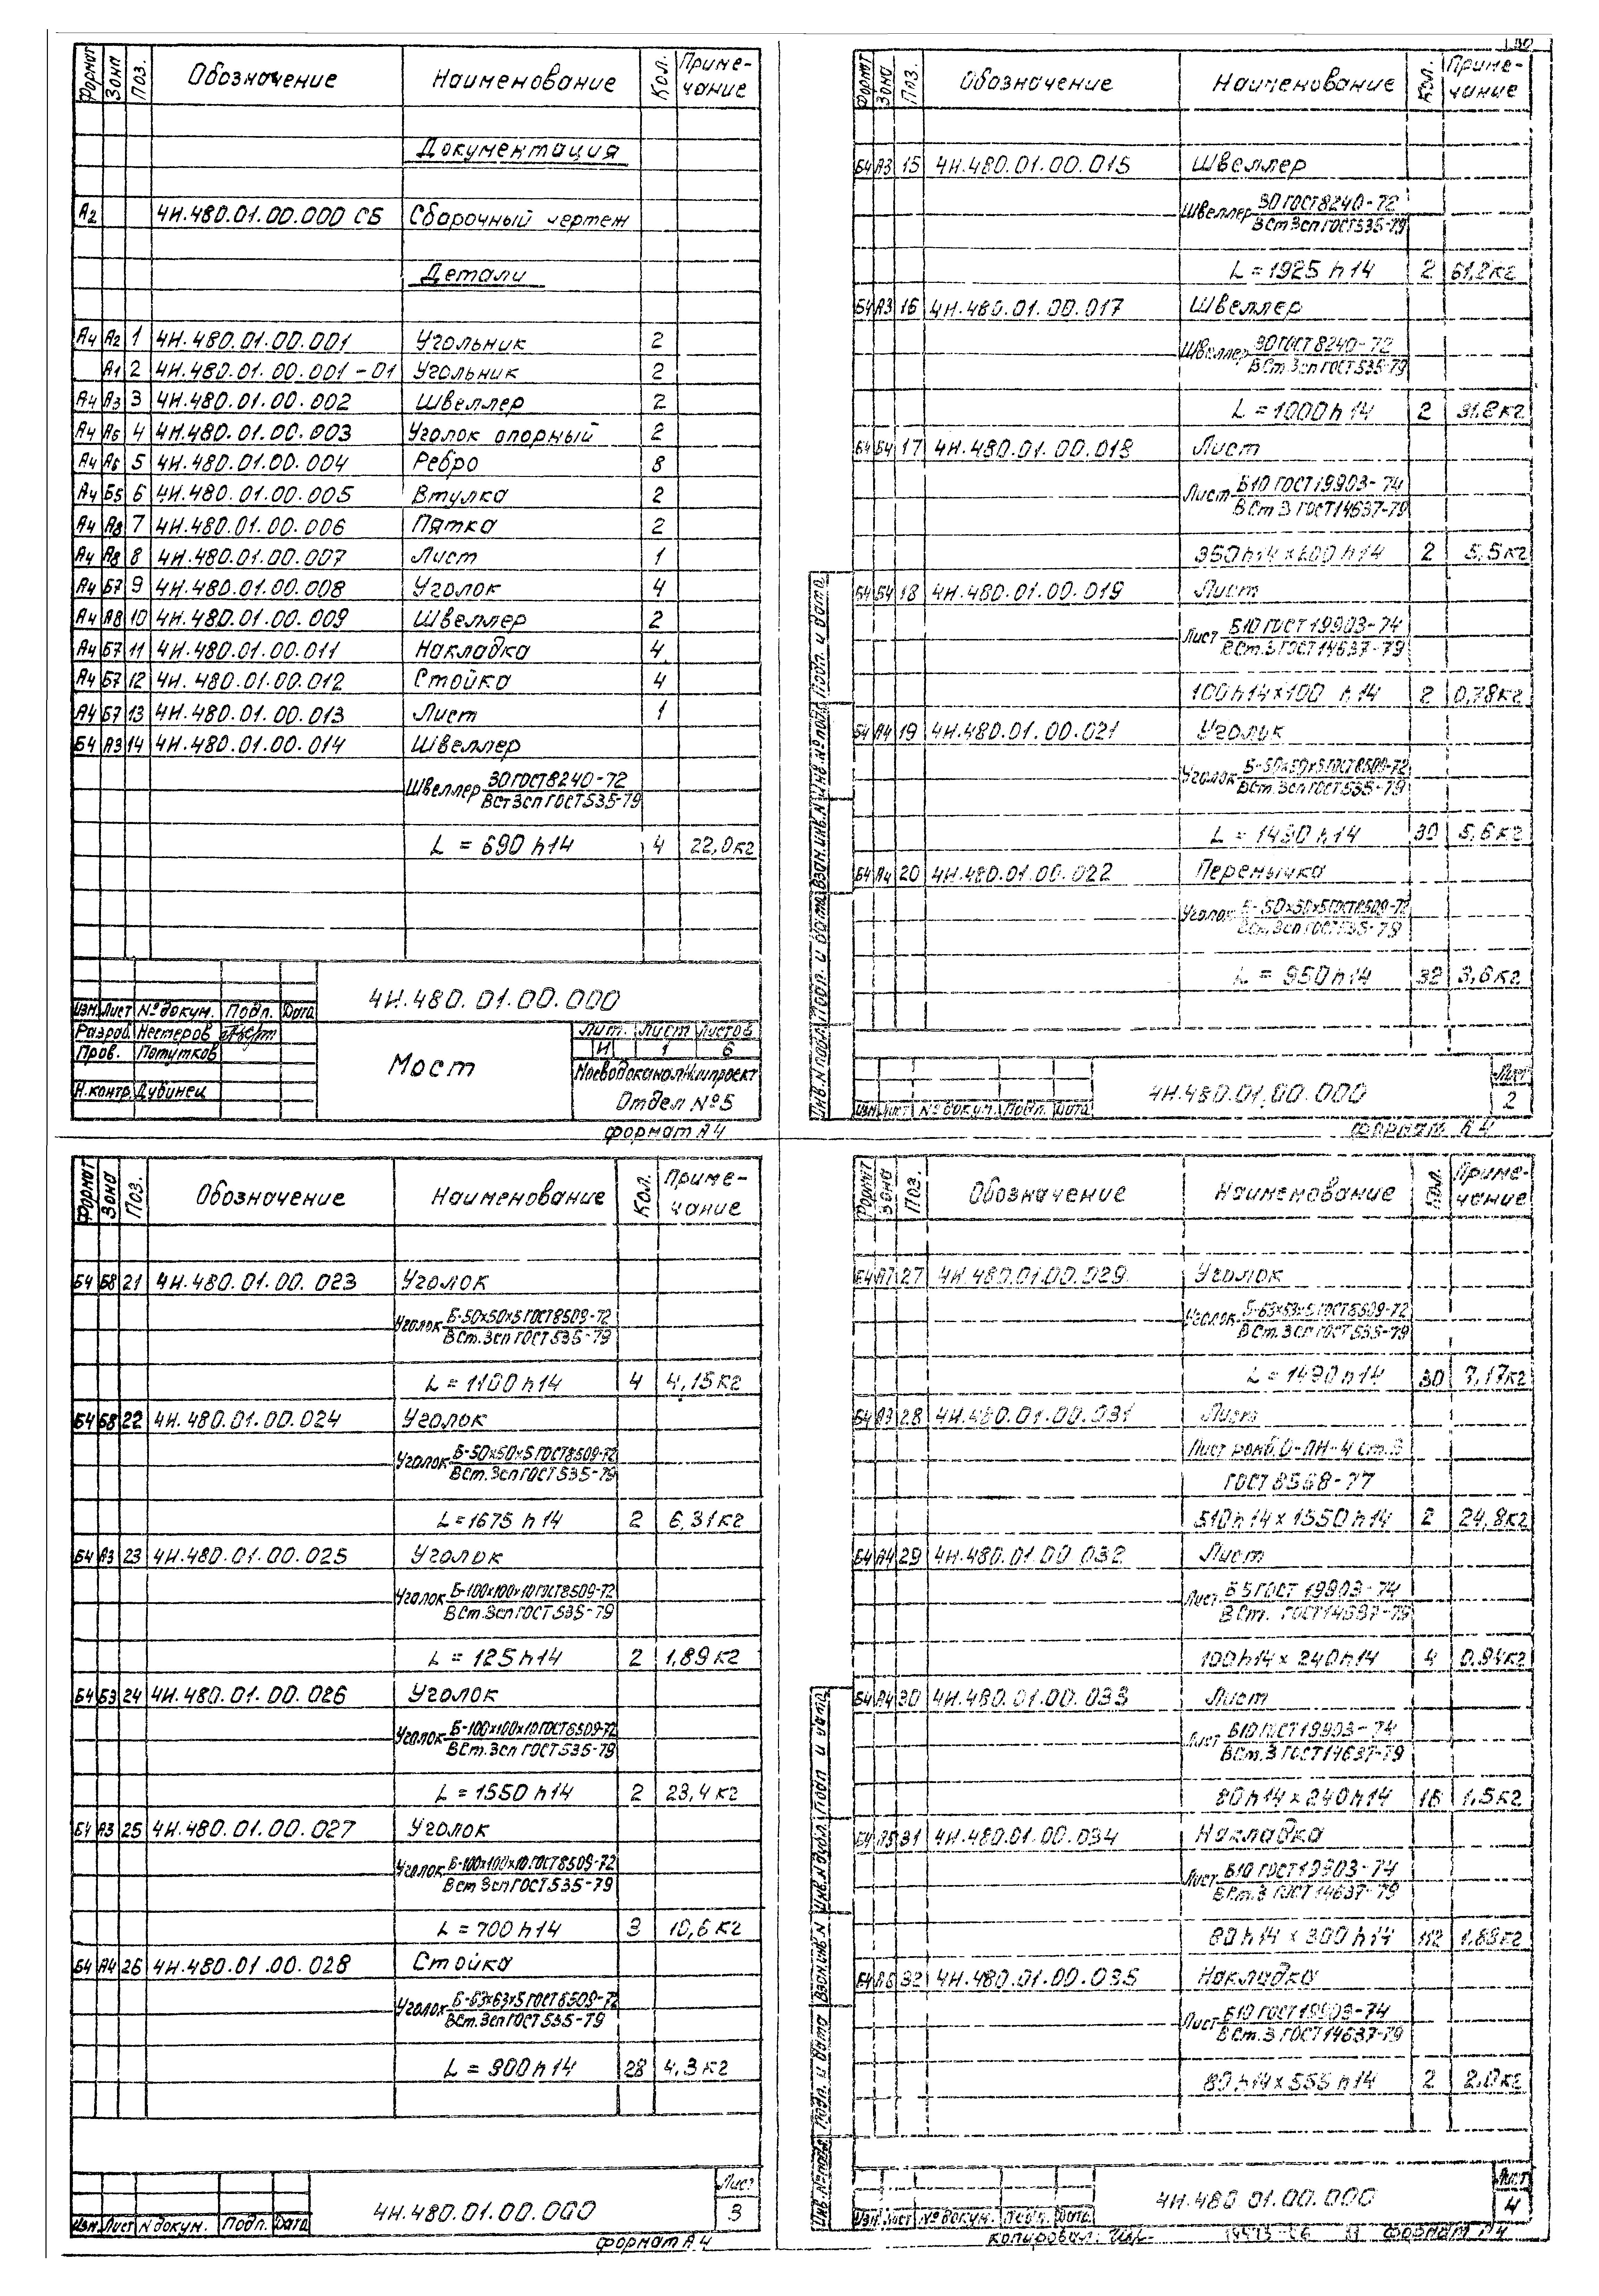 Формат Зона Поз. Обозначение Наименование Кол. Приме-чание
Документация
А2 4Н.480.01.00.000 СБ Сборочный чертеж
Детали
А4 А2 1 4Н.480.01.00.001 Угольник 2
А1 2 4Н.480.01.00.001-01 Угольник 2
А4 А3 3 4Н.480.01.00.002 Швеллер 2
А4 А6 4 4Н.480.01.00.003 Уголок опорный 2
А4 А6 5 4Н.480.01.00.004 Ребро 8
А4 Б5 6 4Н.480.01.00.005 Втулка 2
А4 А8 7 4Н.480.01.00.006 Пятка 2
А4 А8 8 4Н.480.01.00.007 Лист 1
А4 Б7 9 4Н.480.01.00.008 Уголок 4
А4 А8 10 4Н.480.01.00.009 Швеллер 2
А4 Б7 11 4Н.480.01.00.011 Накладка 4
А4 Б7 12 4Н.480.01.00.012 Стойка 4
А4 Б7 13 4Н.480.01.00.013 Лист 1
Б4 А3 14 4Н.480.01.00.014 Швеллер
Швеллер 30 ГОСТ 8240-72
ВСт3сп ГОСТ 535-79
L = 690 h14 4 22,0кг
4Н.480.01.00.000
Изм. Лист № докум. Подп. Дата
Разраб. Нестеров
Пров. Потутков
Н.контр. Дубинец
Мост
Лит. Лист Листов
И 1 6
МосводоканалНИИпроект
Отдел №5
Формат А4
Формат Зона Поз. Обозначение Наименование Кол. Приме-чание
Б4 А3 15 4Н.480.01.00.015 Швеллер
Швеллер 30 ГОСТ 8240-72
ВСт3сп ГОСТ 535-79
L = 1925 h14 2 61,2кг
Б4 А3 16 4Н.480.01.00.017 Швеллер
Швеллер 30 ГОСТ 8240-72
ВСт.3сп ГОСТ 535-79
L = 1000 h14 2 31,8кг
Б4 Б4 17 4Н.480.01.00.018 Лист
Лист Б10 ГОСТ 19903-74
ВСт 3 ГОСТ 14637-79
350 h14 × 200 h14 2 5,5кг
Б4 Б4 18 4Н.480.01.00.019 Лист
Лист Б10 ГОСТ 19903-74
ВСт.3 ГОСТ 14637-79
100 h14×100 h14 2 0,78кг
Б4 А4 19 4Н.480.01.00.021 Уголок
Уголок Б-50×50×5 ГОСТ 8509-72
ВСт.3сп ГОСТ 535-79
L = 1490 h14 30 5,6кг
Б4 А4 20 4Н.480.01.00.022 Перемычка
Уголок Б-50×50×5 ГОСТ 8509-72
ВСт.3сп ГОСТ 535-79
L = 950 h14 32 3,6кг
Инв.№подл. Подп. и дата Взам.инв.№ Инв.№дубл. Подп. и дата
Изм. Лист № докум. Подп. Дата
4Н.480.01.00.000
Лист
2
Формат А4
Формат Зона Поз. Обозначение Наименование Кол. Приме-чание
Б4 Б8 21 4Н.480.01.00.023 Уголок
Уголок Б-50×50×5 ГОСТ 8509-72
ВСт.3сп ГОСТ 535-79
L = 1100 h14 4 4,15кг
Б4 Б8 22 4Н.480.01.00.024 Уголок
Уголок Б-50×50×5 ГОСТ 8509-72
ВСт.3сп ГОСТ 535-79
L = 1675 h14 2 6,31кг
Б4 А3 23 4Н.480.01.00.025 Уголок
Уголок Б-100×100×10 ГОСТ 8509-72
ВСт.3сп ГОСТ 535-79
L = 125 h14 2 1,89кг
Б4 Б3 24 4Н.480.01.00.026 Уголок
Уголок Б-100×100×10 ГОСТ 8509-72
ВСт.3сп ГОСТ 535-79
L = 1550 h14 2 23,4кг
Б4 А3 25 4Н.480.01.00.027 Уголок
Уголок Б-100×100×10 ГОСТ 8509-72
ВСт 3сп ГОСТ 535-79
L = 700 h14 3 10,6кг
Б4 А4 26 4Н.480.01.00.028 Стойка
Уголок Б-63×63×5 ГОСТ 8509-72
ВСт.3сп ГОСТ 535-79
L = 900 h14 28 4,3кг
Изм. Лист № докум. Подп. Дата
4Н.480.01.00.000
Лист
3
Формат А4
Формат Зона Поз. Обозначение Наименование Кол. Приме-чание
Б4 А7 27 4Н.480.01.00.029 Уголок
Уголок Б-63×63×5 ГОСТ 8509-72
ВСт.3сп ГОСТ 535-79
L = 1490 h14 30 7,17кг
Б4 А3 28 4Н.480.01.00.031 Лист
Лист ромб. О-ПН-4 ст.3
ГОСТ 8568-77
510 h14 × 1550 h14 2 24,8кг
Б4 А4 29 4Н.480.01.00 032 Лист
Лист Б 5 ГОСТ 19903-74
ВСт. ГОСТ 14637-79
100 h14 × 240 h14 4 0,94кг
Б4 А4 30 4Н.480.01.00.033 Лист
Лист Б10 ГОСТ 19903-74
ВСт.3 ГОСТ 14637-79
80 h14 × 240 h14 16 1,5кг
Б4 А5 31 4Н.480.01.00.034 Накладка
Лист Б10 ГОСТ 19903-74
ВСт.3 ГОСТ 14637-79
80 h14 × 300 h14 112 1,88кг
Б4 32 4Н.480.01.00.035 Накладка
Лист Б10 ГОСТ 19903-74
ВСт.3 ГОСТ 14637-79
80 h14 × 555 h14 2 2,0кг
Инв.№подл. Подп. и дата Взам.инв.№ Инв.№дубл. Подп. и дата
Изм. Лист № докум. Подп. Дата
4Н.480 01.00.000
Лист
4
Копировал: Формат А4